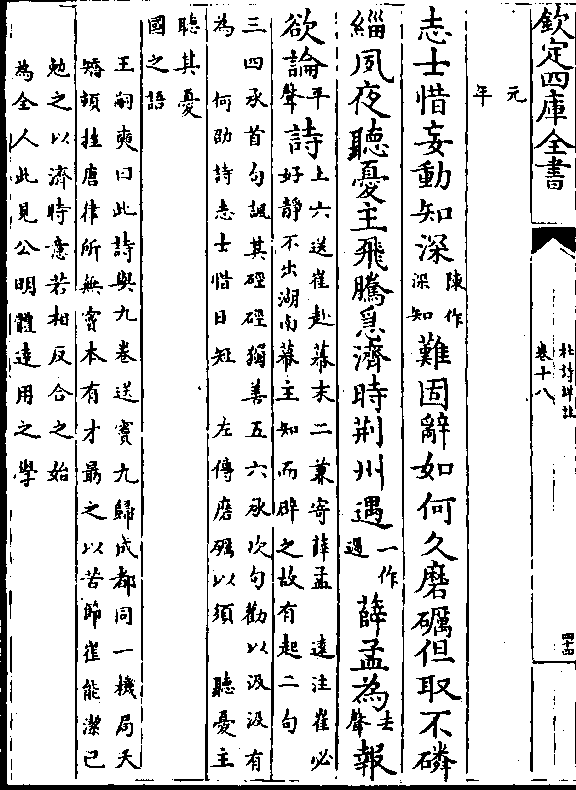 欽定四庫全書
杜詩詳註
卷十八
四十四
元
年
志士惜妄動知深陳作深知難固辭如何久磨礪但取不磷
緇夙夜聽憂主飛騰急濟時荆州遇一作過薛孟為去聲報
欲論平聲詩上六送崔赴幕末二兼寄薛孟 遠注崔必好靜不出湖南幕主知而辟之故有起二句
三四承首句諷其硜硜獨善五六承次句勸以汲汲有
為 何劭詩志士惜日短 左傳磨礪以須 聽憂主
聽其憂
國之語
王嗣奭曰此詩與九卷送竇九歸成都同一機局天
矯頓挫唐律所無竇本有才最之以苦節崔能潔己
勉之以濟時意若相反合之始
為全人此見公明體達用之學